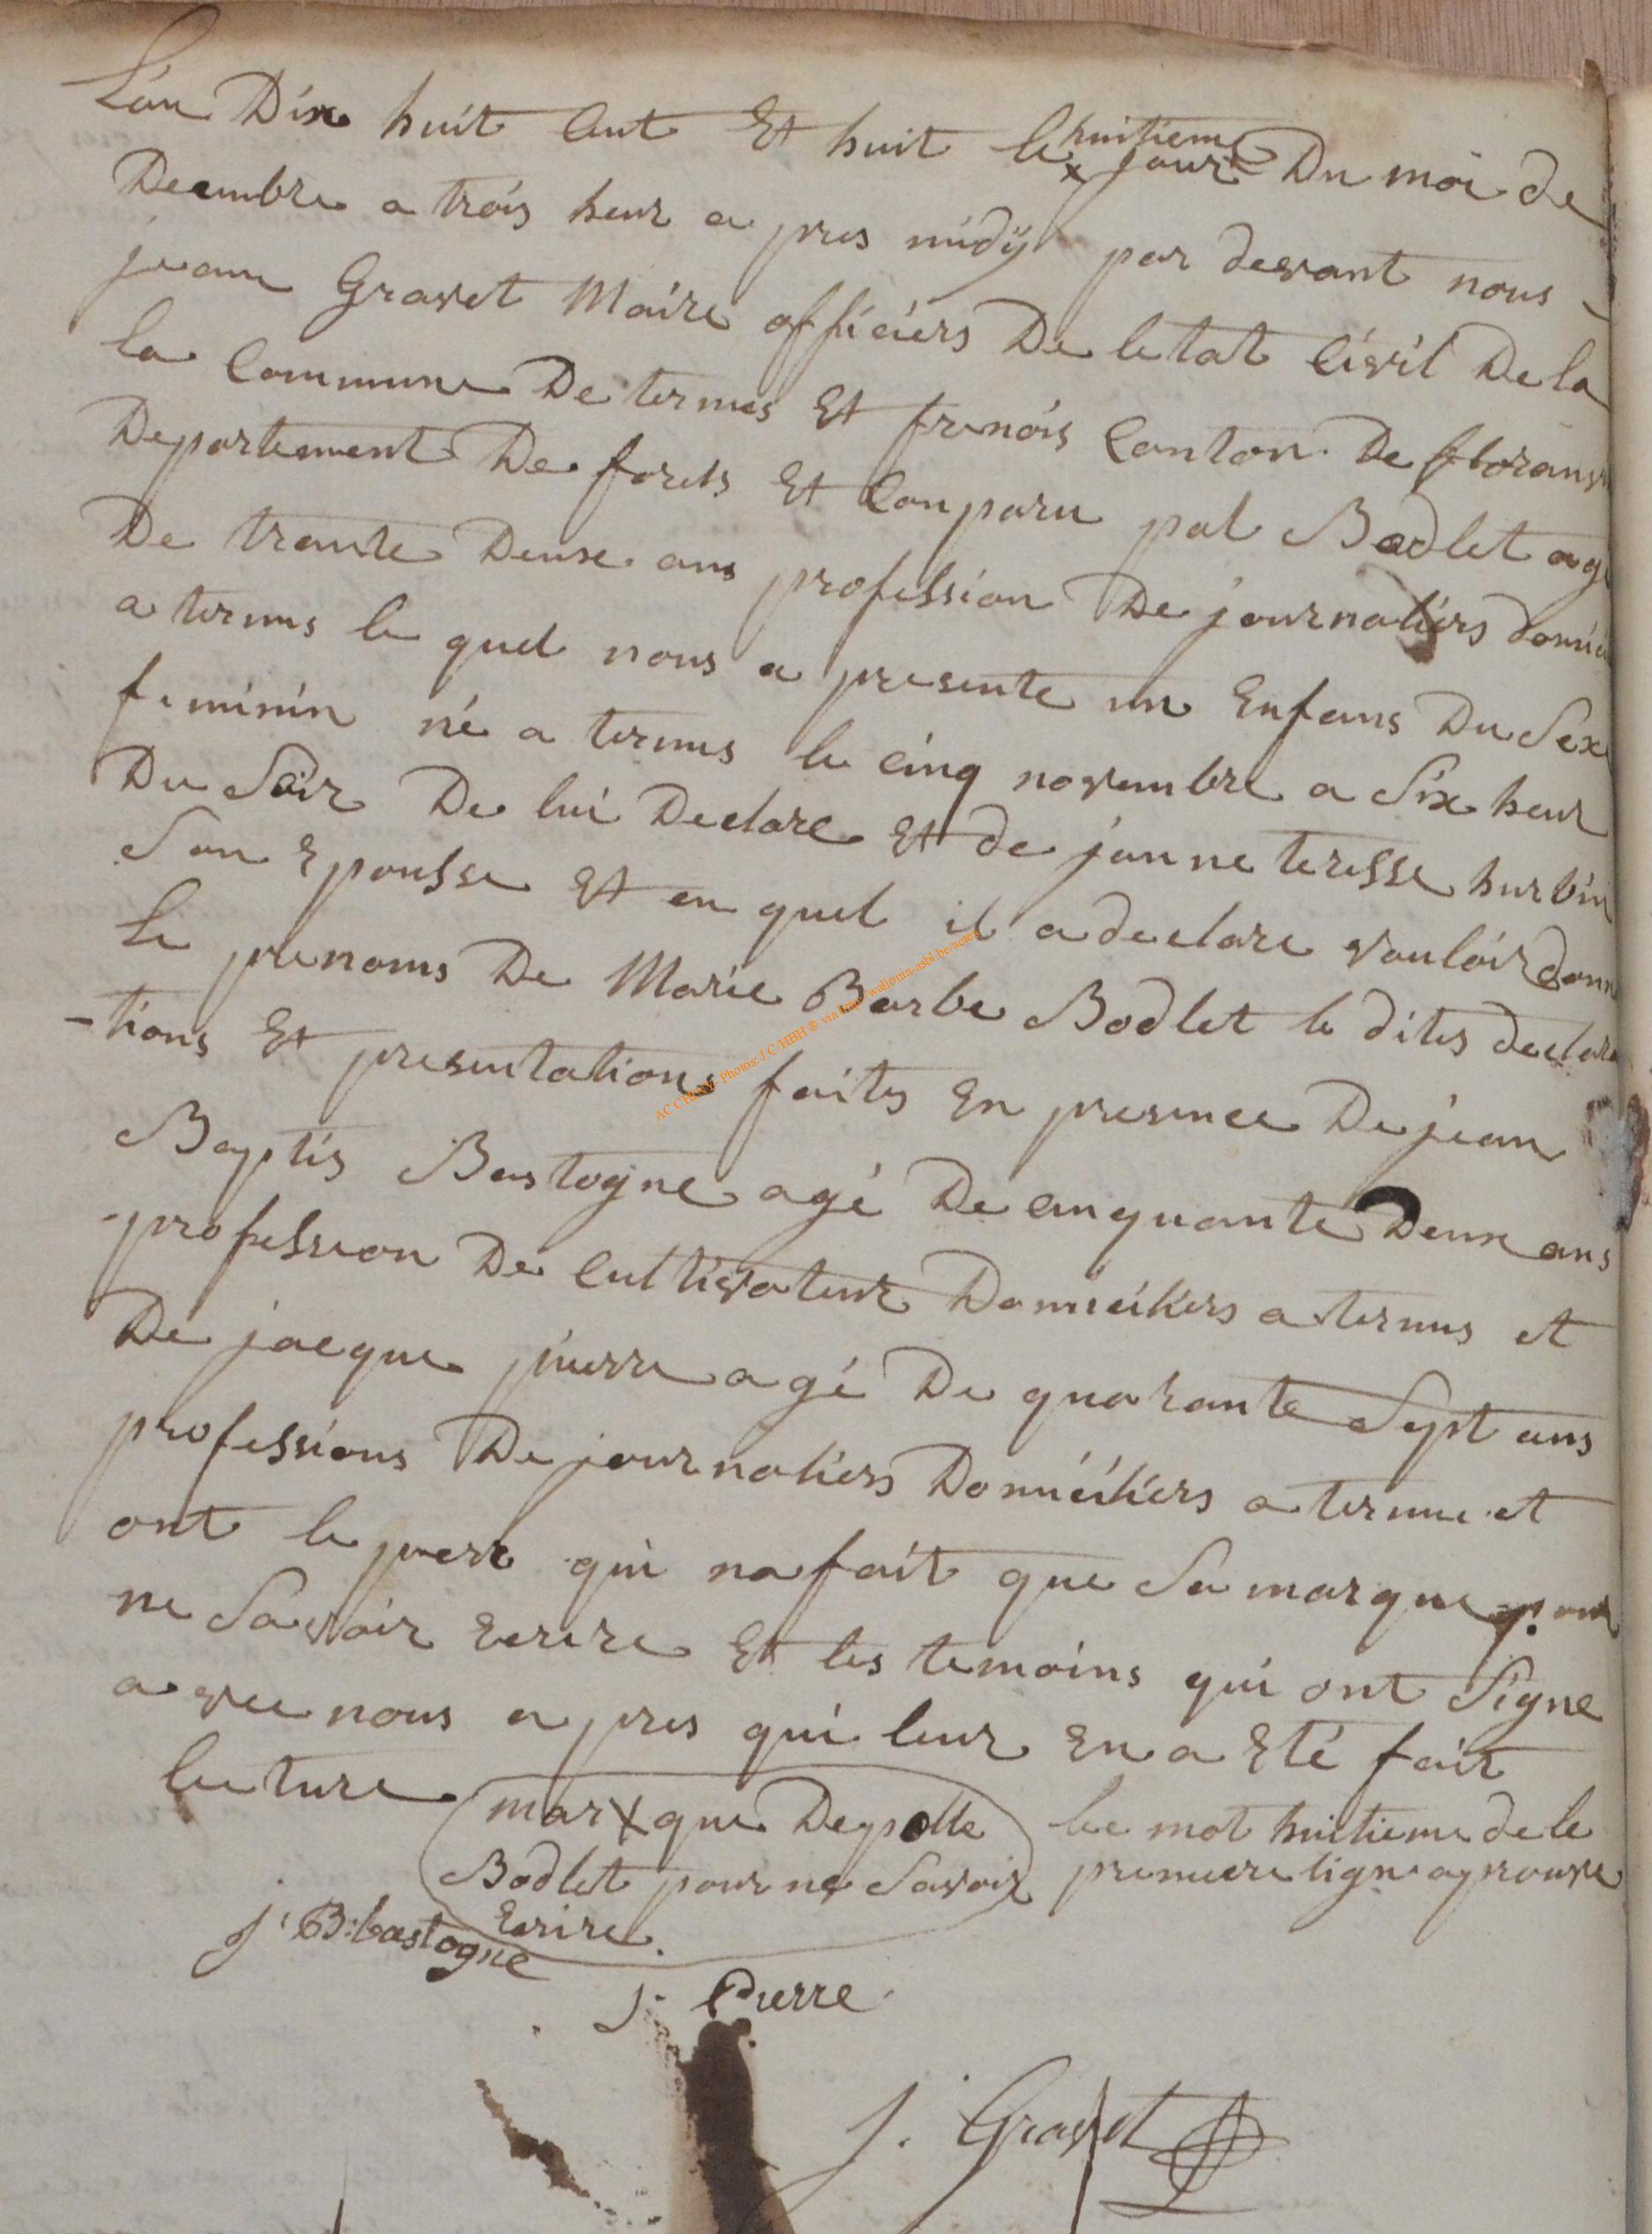 L'an Dix huit Cent Et huit le x huitieme jour Du moi de
Decembre a trois heur a pres midÿ par devant nous
jean Gravet Maire officiers De letat Civil De la
la Commune De termes Et frenois Canton De floranv
Departement De forets Et Conparu pol Bodlet agé
De trante Deuxe ans profession De journaliers domic
a termes le quel nous a presente un Enfans Du Sex
feminin né a termes le cinq novembre a Six heur
Du Soir De lui Declare Et de janneteresse hurbin
Son Epousse Et en quel il a declare vouloir donn
Le prenoms De Marie Barbe Bodlet le dites declara
-tions Et presentations faites En presence De jean
Baptis Bastogne agé De cinquante Deux ans
profession De Cultivateur Domicikiers a termes et
De jacque pierre agé De quarante Sept ans
professions De journaliers Domicikiers a terme et
ont le pere qui na fait que Sa marque pour
ne Savoir Ecrire Et les temoins qui ont Signe
avec nous a pres qui leur En a Eté fait
lecture
mar x que De polle
Bodlet pour ne Savoir
Ecrire.
Le mot huitieme de le
premiere ligne aprouve
j: B: bastogne
J. Pierre
J. Gravet
AC CHINY Photos J.C.HBH © via http://wallonia-asbl.be/actes